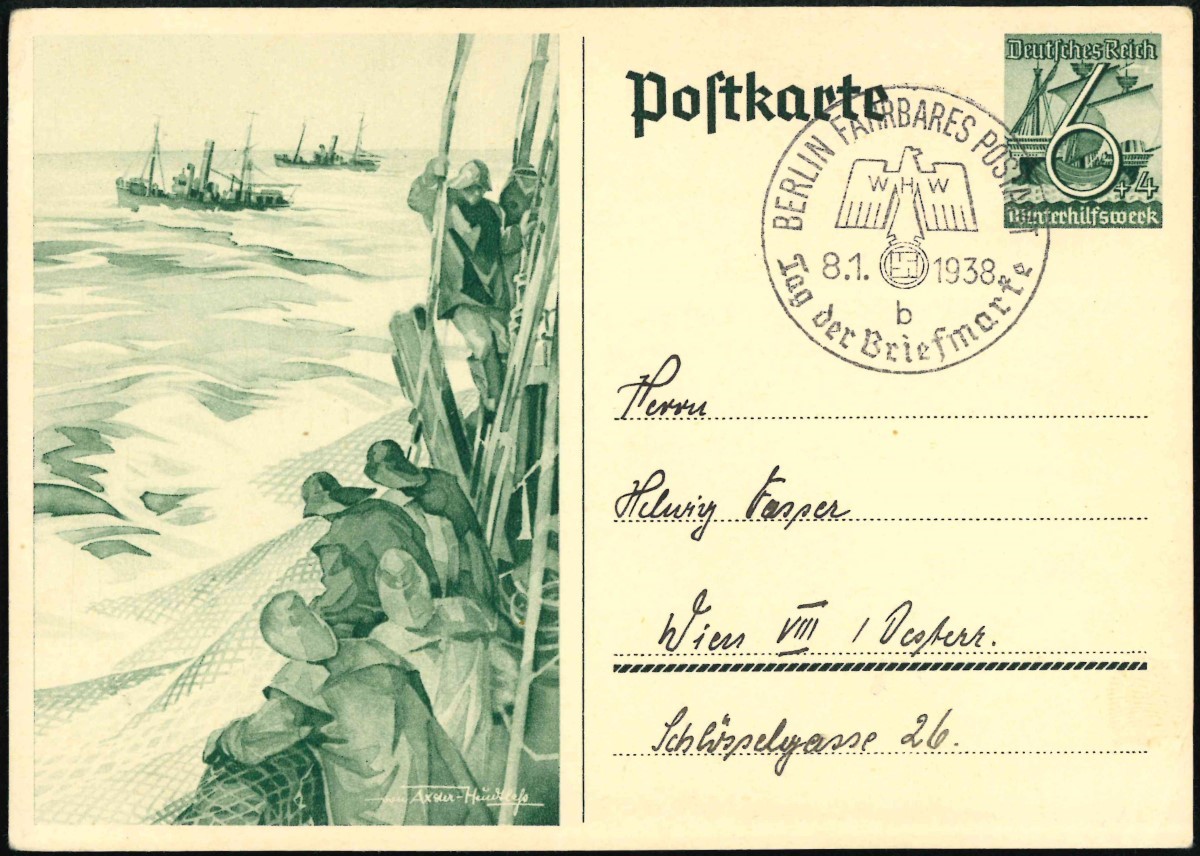 Postkarte
Deutsches Reich
6
+4
Winterhilfswerk
BERLIN FAHRBARES POSTAMT
W H W
8.1. 1938
b
Tag der Briefmarke
Herrn
Helwig Fasper
Wien VIII / Oesterr.
Schlösselgasse 26.
Axster-Heudtlaß